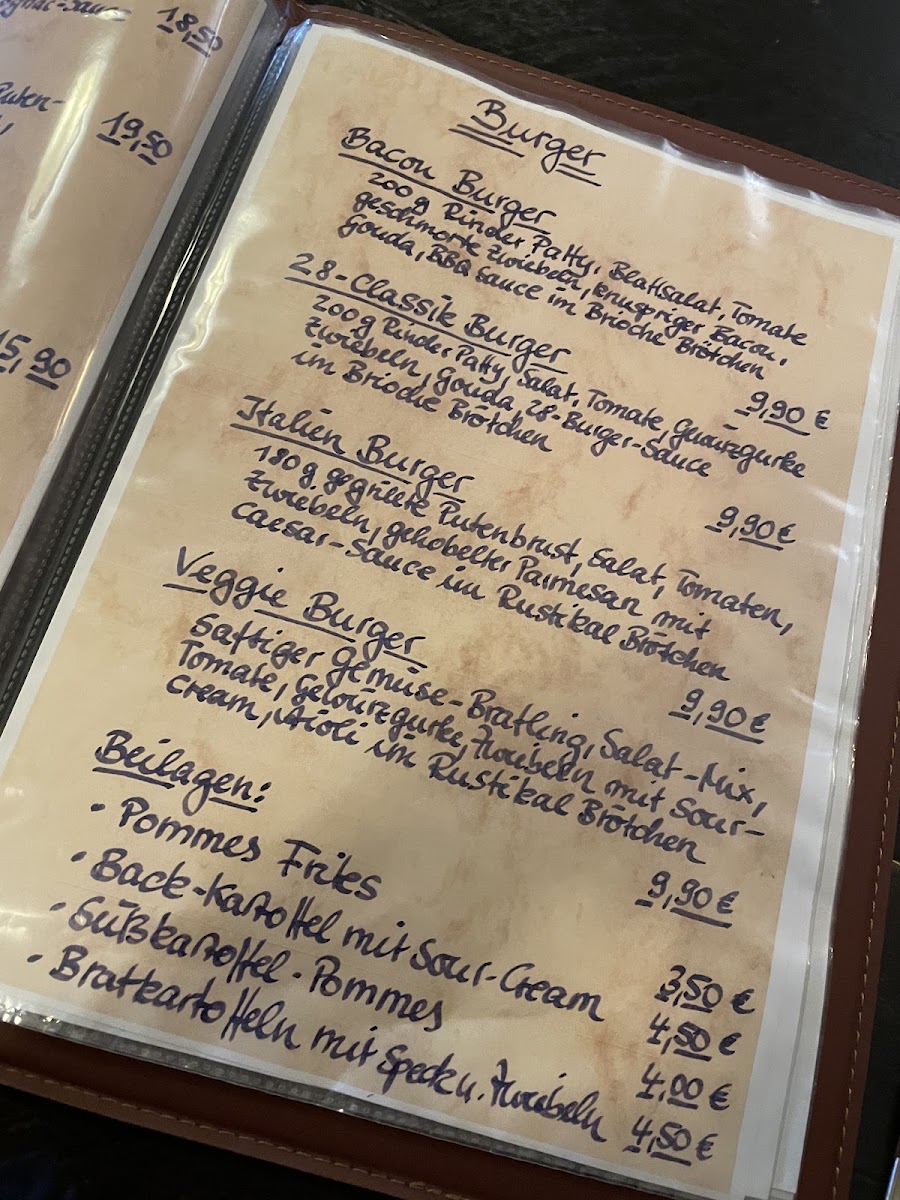 18,50
19,50
15,90
Burger
Bacon Burger
200g Rinder Patty, Blattsalat, Tomate
geschmorte Zwiebeln, knuspriger Bacon,
Gouda, BBQ Sauce im Brioche Brötchen
9,90 €
28-Classik Burger
200g Rinder Patty, Salat, Tomate, Gewürzgurke
Zwiebeln, Gouda, 28-Burger-Sauce
im Brioche Brötchen
9,90 €
Italien Burger
180g gegrillte Putenbrust, Salat, Tomaten,
Zwiebeln, gehobelter Parmesan mit
Caesar-Sauce im Rustikal Brötchen
9,90 €
Veggie Burger
Saftiger Gemüse-Bratling, Salat-Mix,
Tomate, Gewürzgurke, Zwiebeln mit Sour-
Cream, Aioli im Rustikal Brötchen
9,90 €
Beilagen:
• Pommes Frites 3,50 €
• Back-Kartoffel mit Sour-Cream 4,50 €
• Süßkartoffel-Pommes 4,00 €
• Bratkartoffeln mit Speck u. Zwiebeln 4,50 €